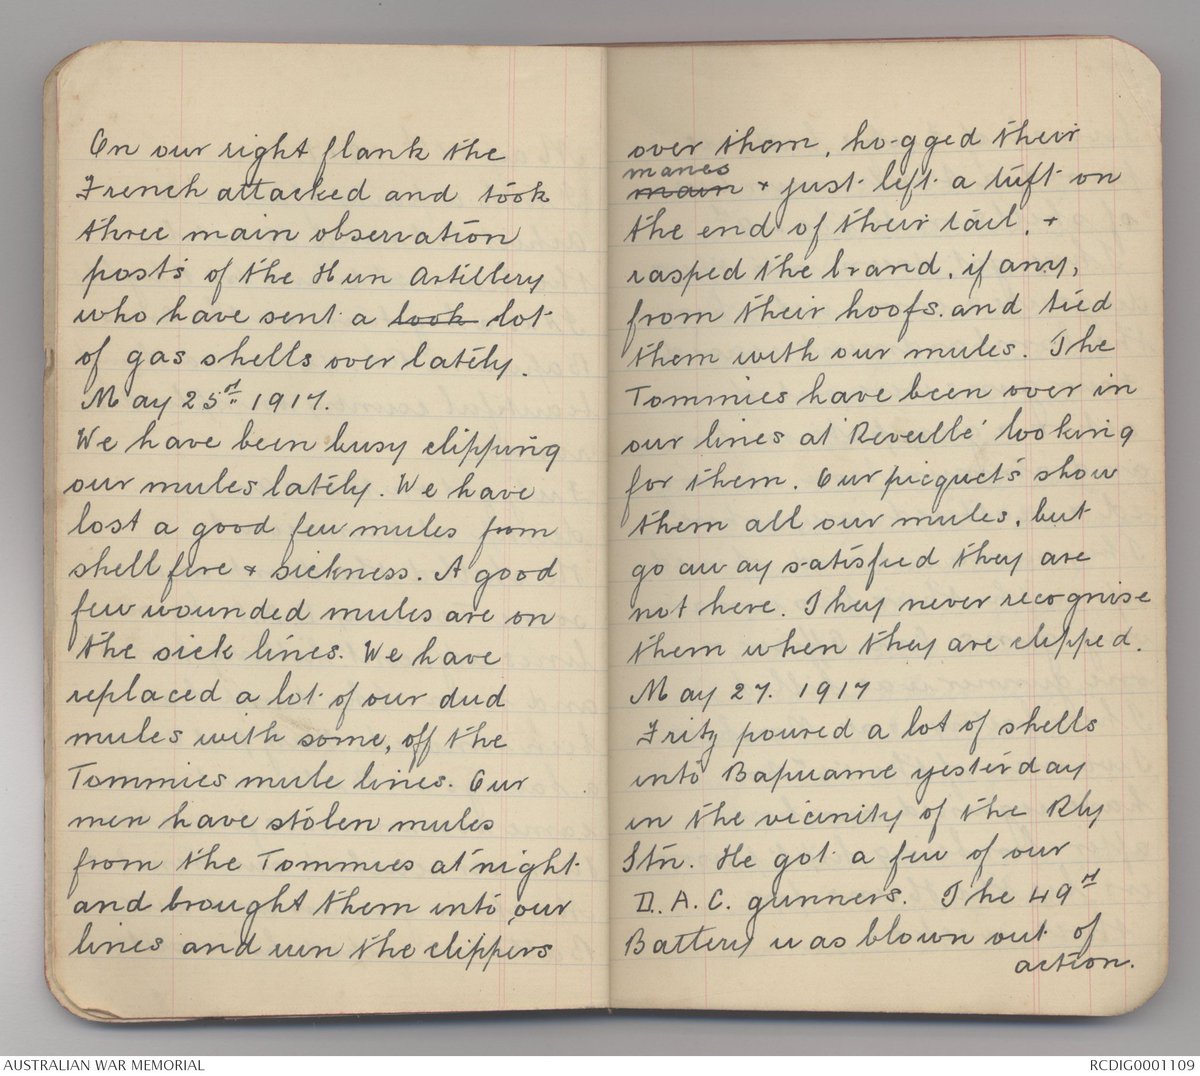 On our right flank the
French attacked and took
three main observation
posts of the Hun Artillery
who have sent a look lot
of gas shells over lately.
May 25th 1917.
We have been busy clipping
our mules lately. We have
lost a good few mules from
shell fire + sickness. A good
few wounded mules are on
the sick lines. We have
replaced a lot of our dud
mules with some, off the
Tommies mule lines. Our
men have stolen mules
from the Tommies at night
and brought them into our
lines and run the clippers
over them, hogged their
manes
main + just left a tuft on
the end of their tail, +
rasped the brand, if any,
from their hoofs. and tied
them with our mules. The
Tommies have been over in
our lines at 'Reveille' looking
for them. Our picquets show
them all our mules, but
go away satisfied they are
not here. They never recognise
them when they are clipped.
May 27. 1917
Fritz poured a lot of shells
into Bapuame yesterday
in the vicinity of the Rly
Stn. He got a few of our
D.A.C. gunners. The 49th
Battery was blown out of
action.
AUSTRALIAN WAR MEMORIAL
RCDIG0001109